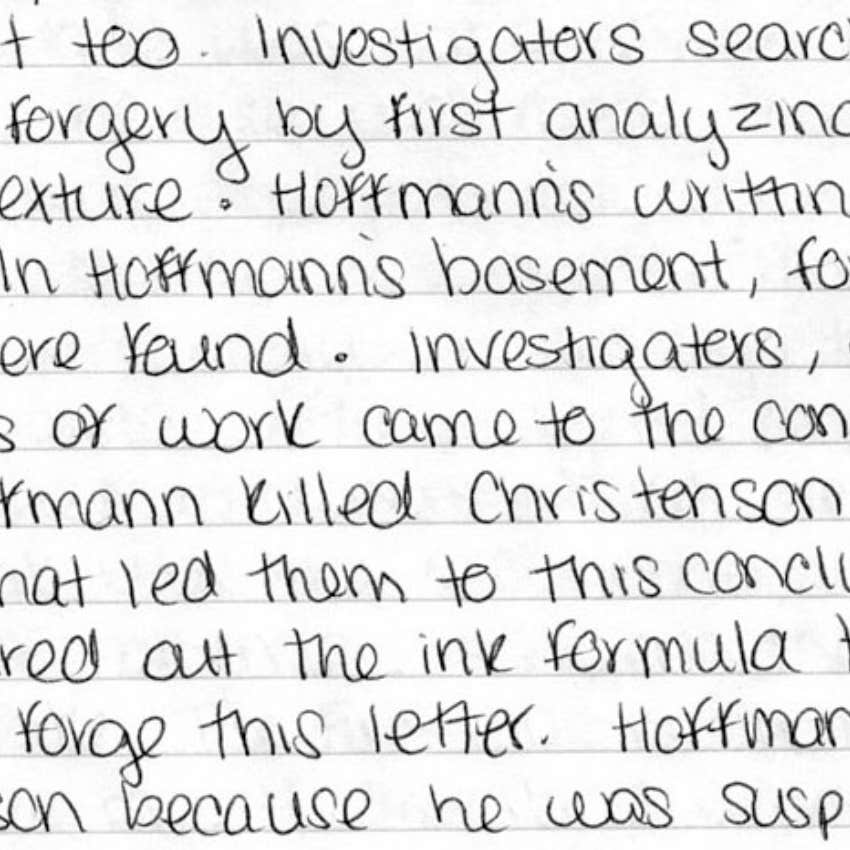 t too. Investigators searc
forgery by first analyzing
exture. Hoffmann's writtin
In Hoffmann's basement, fo
ere found. Investigaters,
s of work came to the con
fmann killed Christenson
hat led them to this conclu
red out the ink formula t
forge this letter. Hoffman
son because he was susp